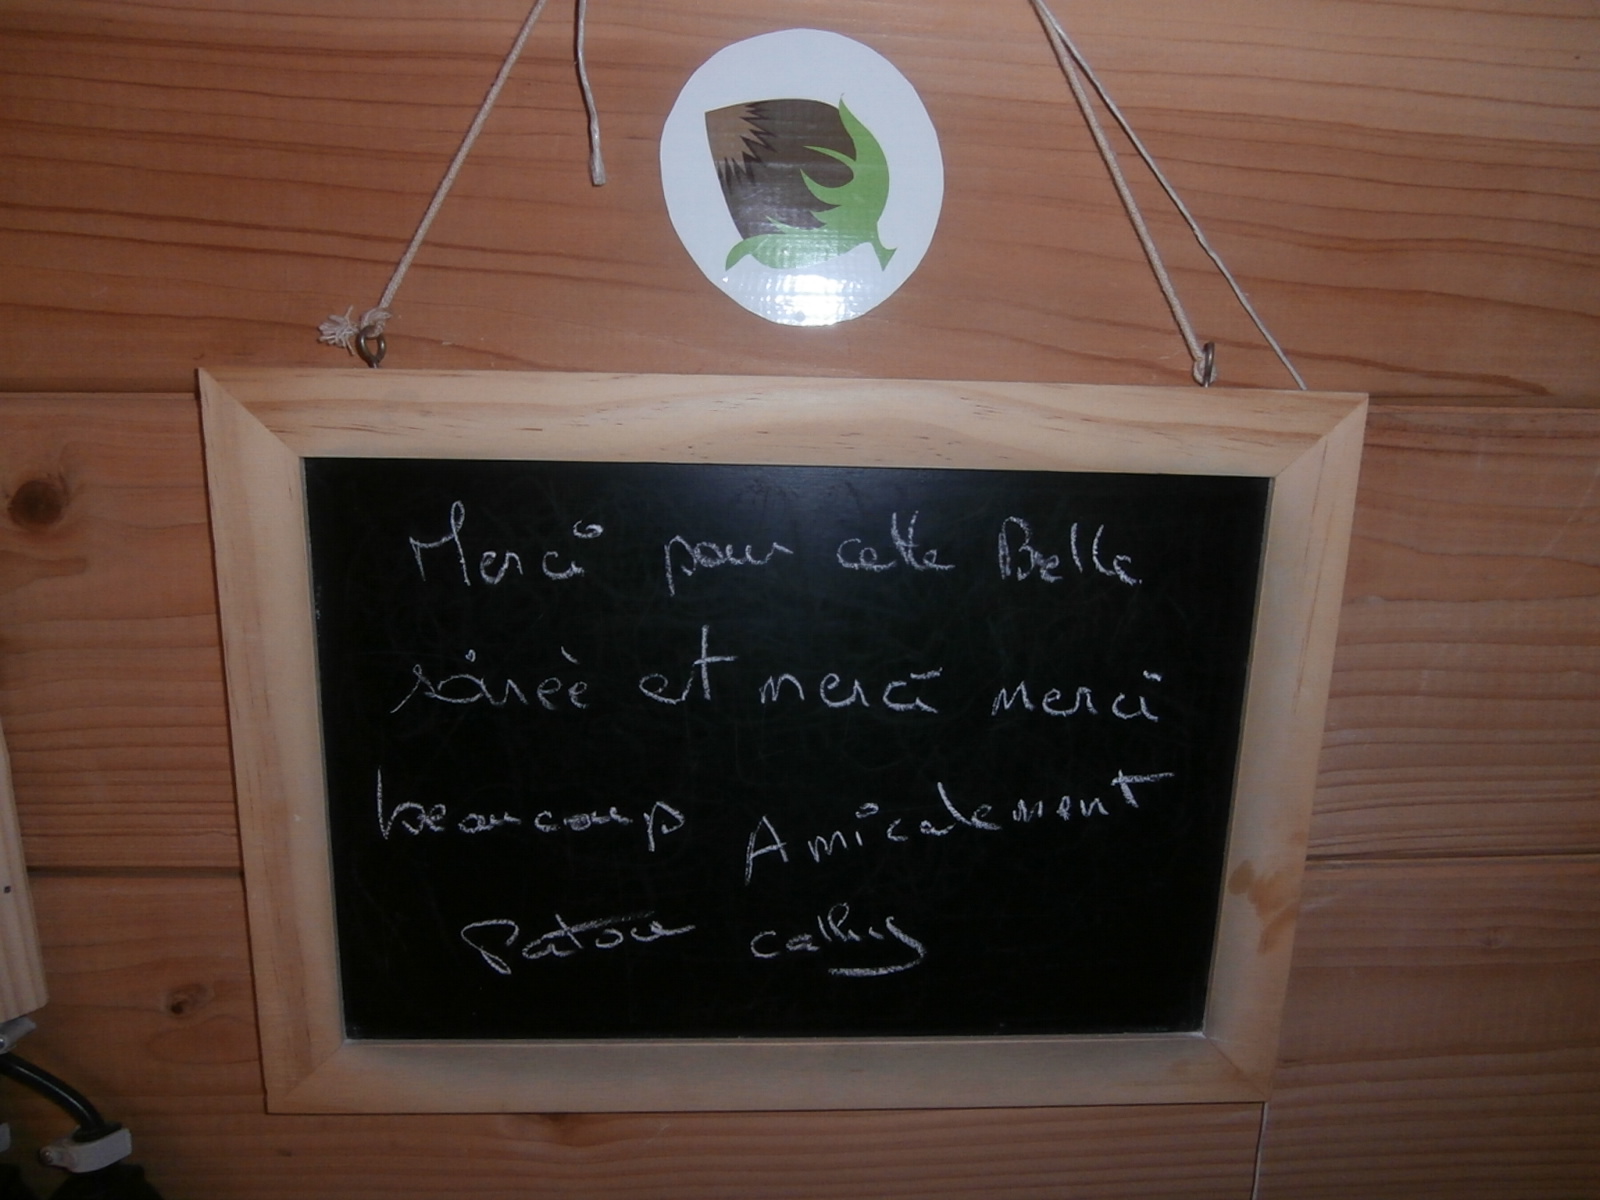 Merci pour cette Belle
soirée et merci merci
beaucoup Amicalement
cathy